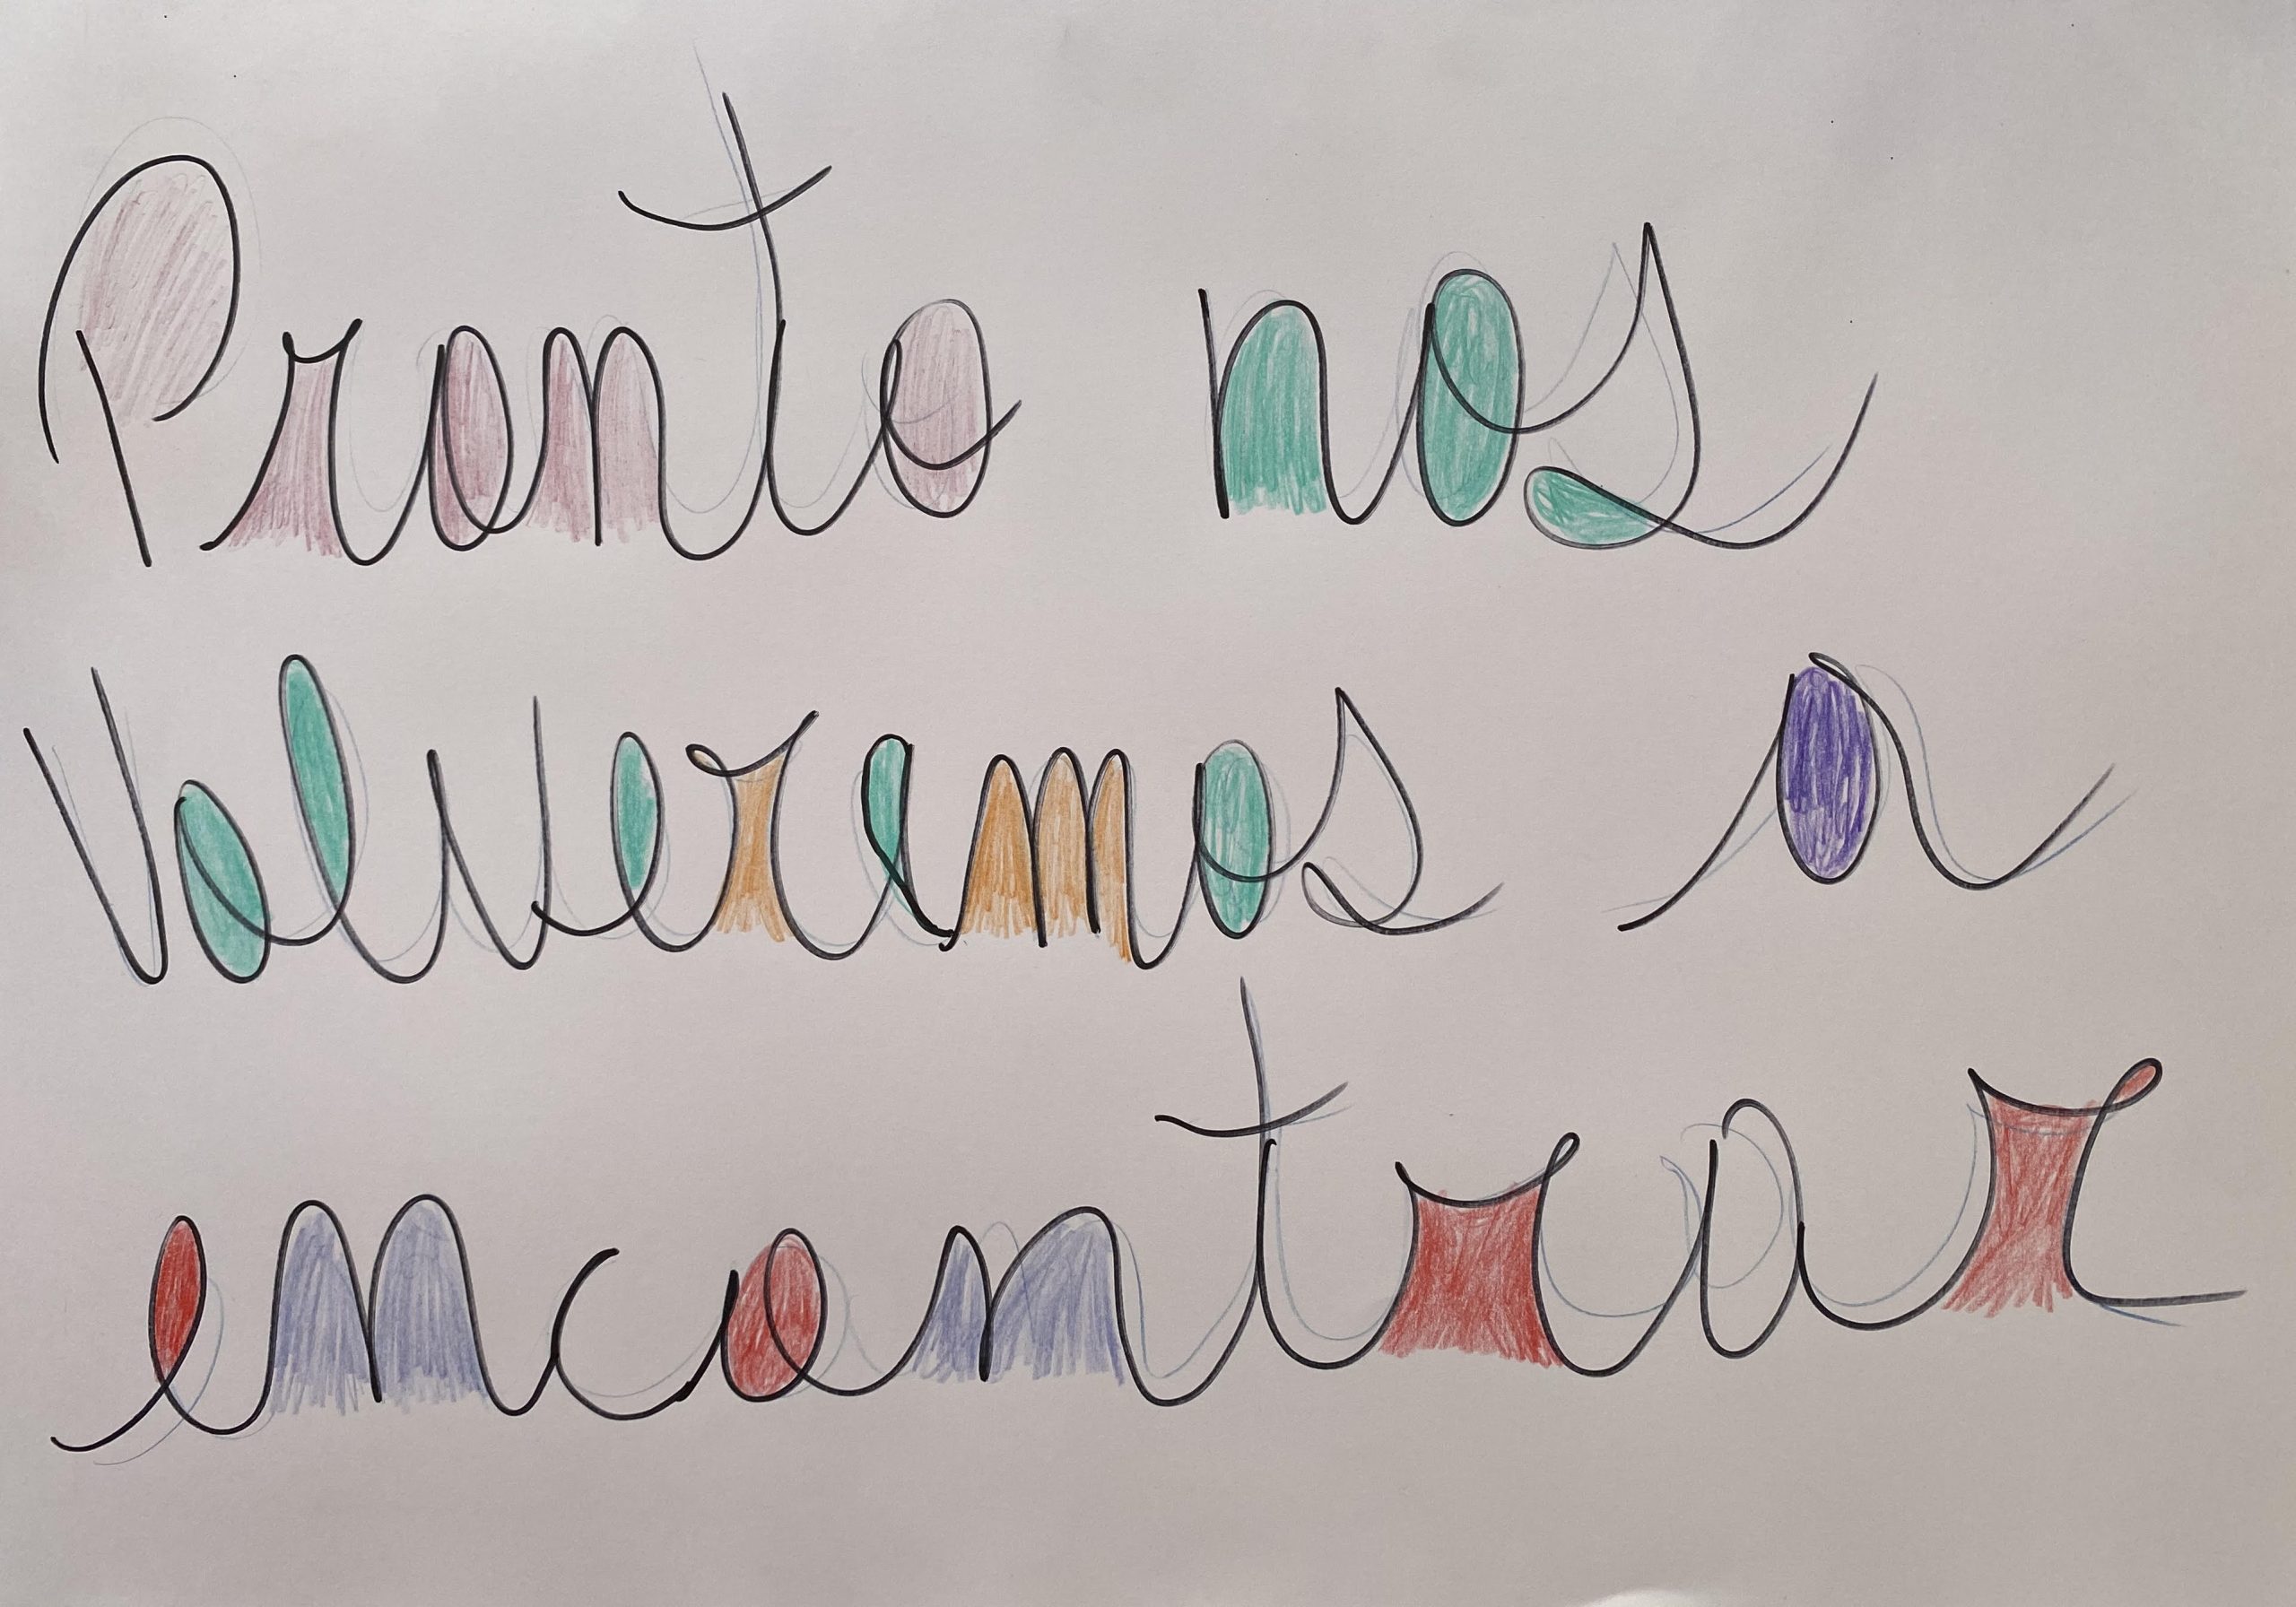 Pronto nos
Volveremos a
encontrar